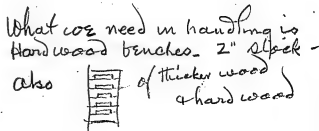 What we need in handling is
Hardwood benches. 2" stock -
also of thicker wood
& hard wood